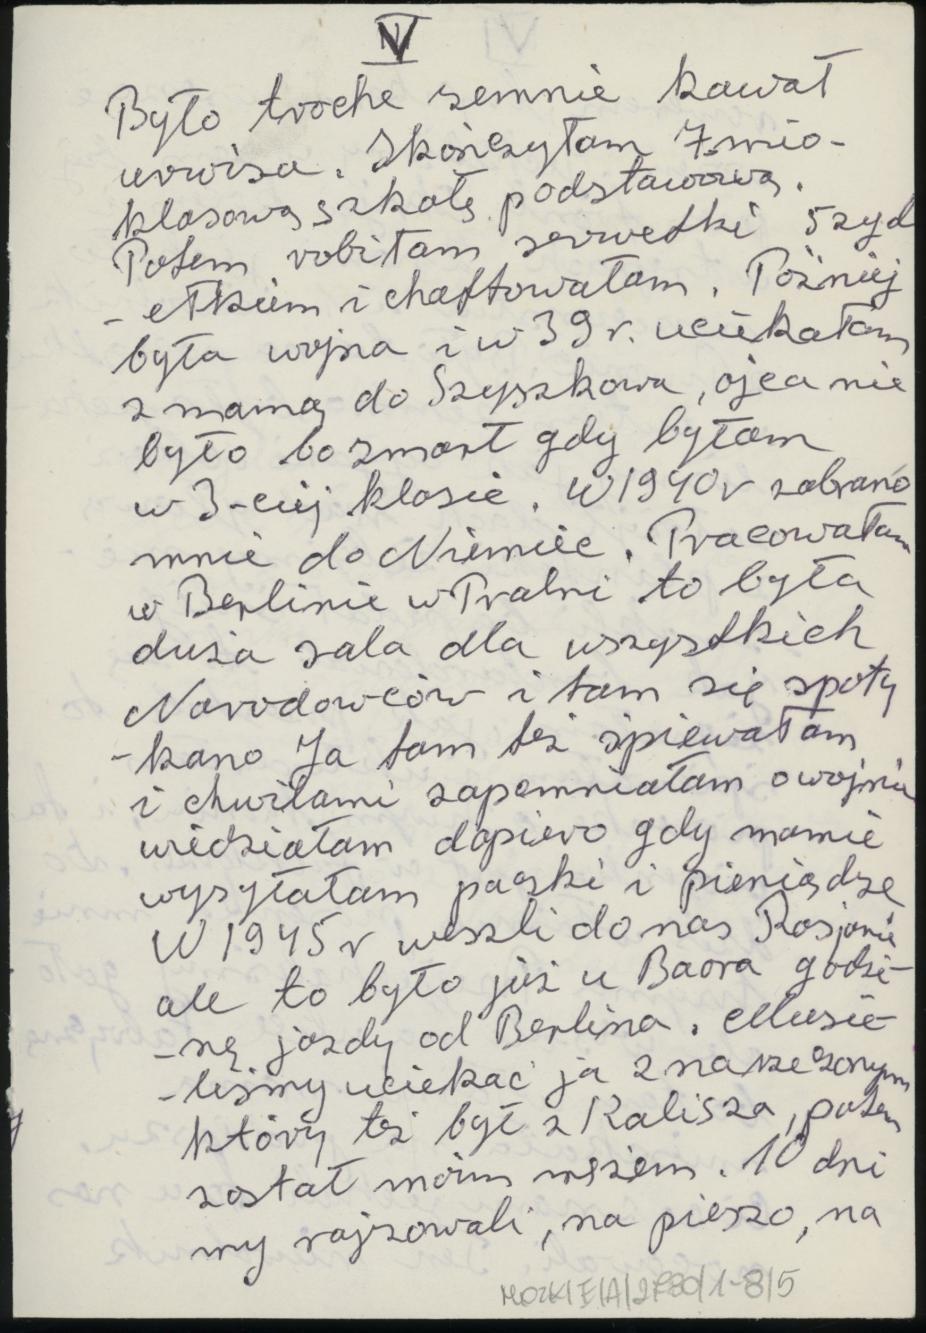 V
Było troche zemnie kawał
urwisa. Skończyłam 7.mio-
klasową szkołę podstawową.
Potem robiłam serwetki szyd
-ełkiem i chaftowałam. Później
była wojna i w 39 r. uciekałam
z mamą do Szyszkowa, ojca nie
było bo zmarł gdy byłam
w 3-ciej klasie. W 1940 r zabrano
mnie do Niemiec. Pracowałam
w Berlinie w Pralni to była
duża sala dla wszystkich
Narodowców i tam się spoty
-kano Ja tam też śpiewałam
i chwilami zapomniałam o wojnie
wiedziałam dopiero gdy mamie
wysyłałam paczki i pieniądze
W 1945 r weszli do nas Rosjanie
ale to było już u Baora godzi-
-nę jazdy od Berlina. Musie-
-liśmy uciekać ja z narzeczonym
który też był z Kalisza, potem
został moim mężem. 10 dni
my rajzowali, na pieszo, na
MOZK/E/A/2780/1-8/5